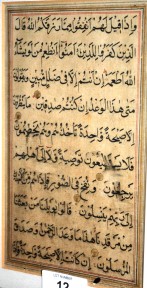 وَإِذَا قِيلَ لَهُمْ أَنفِقُوا مِمَّا رَزَقَكُمُ اللَّهُ قَالَ
الَّذِينَ كَفَرُوا لِلَّذِينَ آمَنُوا أَنُطْعِمُ مَن لَّوْ يَشَاءُ
اللَّهُ أَطْعَمَهُ إِنْ أَنتُمْ إِلَّا فِي ضَلَالٍ مُّبِينٍ وَيَقُولُونَ
مَتَى هَذَا الْوَعْدُ إِن كُنتُمْ صَادِقِينَ مَا يَنظُرُونَ
إِلَّا صَيْحَةً وَاحِدَةً تَأْخُذُهُمْ وَهُمْ يَخِصِّمُونَ
فَلَا يَسْتَطِيعُونَ تَوْصِيَةً وَلَا إِلَى أَهْلِهِمْ
يَرْجِعُونَ وَنُفِخَ فِي الصُّورِ فَإِذَا هُم مِّنَ الْأَجْدَاثِ
إِلَى رَبِّهِمْ يَنسِلُونَ قَالُوا يَا وَيْلَنَا مَن بَعَثَنَا
مِن مَّرْقَدِنَا هَذَا مَا وَعَدَ الرَّحْمَنُ وَصَدَقَ
الْمُرْسَلُونَ إِن كَانَتْ إِلَّا صَيْحَةً وَاحِدَةً
LOT NUMBER